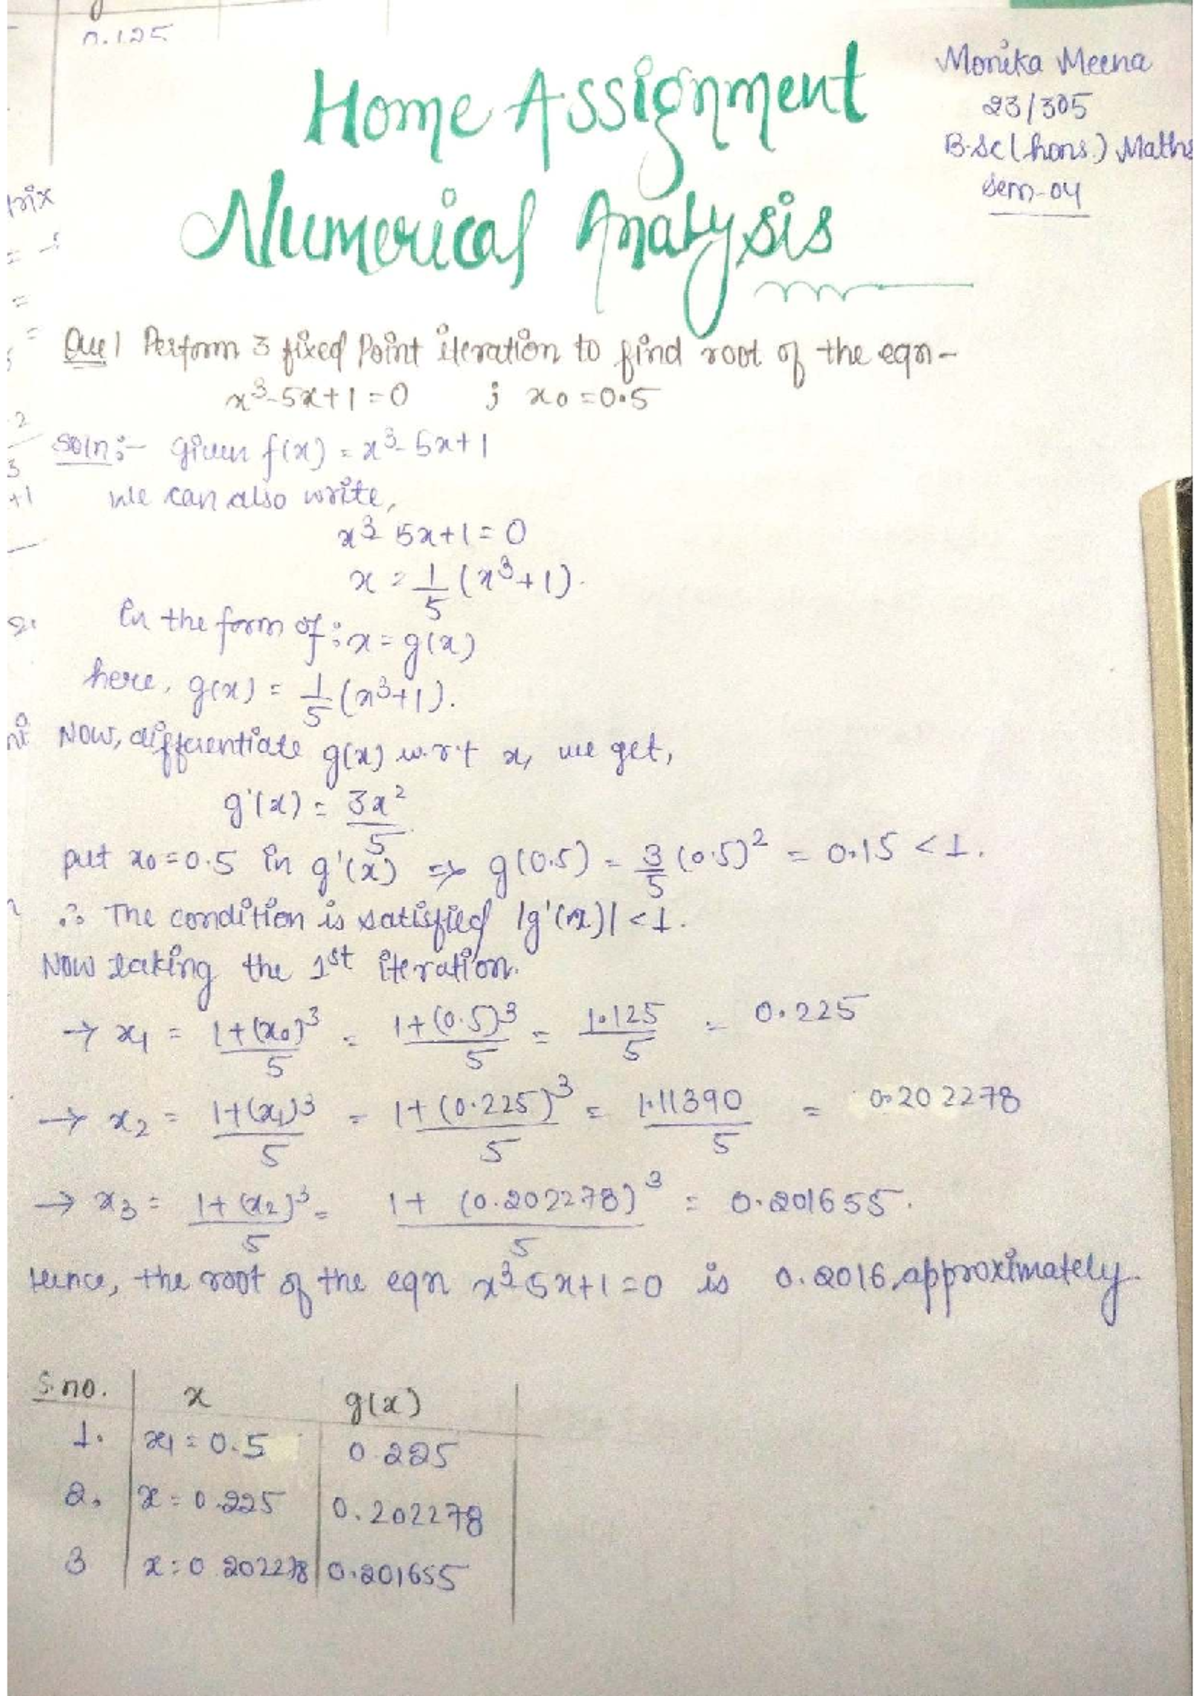 0.125
Home Assignment
Numerical Analysis
Monika Meena
23/305
B.Sc (hons.) Maths
Sem-04
Que 1 Perform 3 fixed Point iteration to find root of the eqn-
x³-5x+1=0 ; x0=0.5
Soln:- given f(x) = x³-5x+1
We can also write,
x³-5x+1=0
x = 1/5 (x³+1).
in the form of: x=g(x)
here, g(x) = 1/5 (x³+1).
Now, differentiate g(x) w.r.t x, we get,
g'(x) = 3x²/5
put x0=0.5 in g'(x) => g(0.5) = 3/5 (0.5)² = 0.15 < 1.
∴ The condition is satisfied |g'(x)| < 1.
Now taking the 1st iteration.
→ x1 = 1+(x0)³/5 = 1+(0.5)³/5 = 1.125/5 = 0.225
→ x2 = 1+(x1)³/5 = 1+(0.225)³/5 = 1.11390/5 = 0.202278
→ x3 = 1+(x2)³/5 = 1+ (0.202278)³/5 = 0.201655.
Hence, the root of the eqn x³-5x+1=0 is 0.2016 approximately.
S.no. x g(x)
1. x1=0.5 0.225
2. x=0.225 0.202278
3 x=0.202278 0.201655